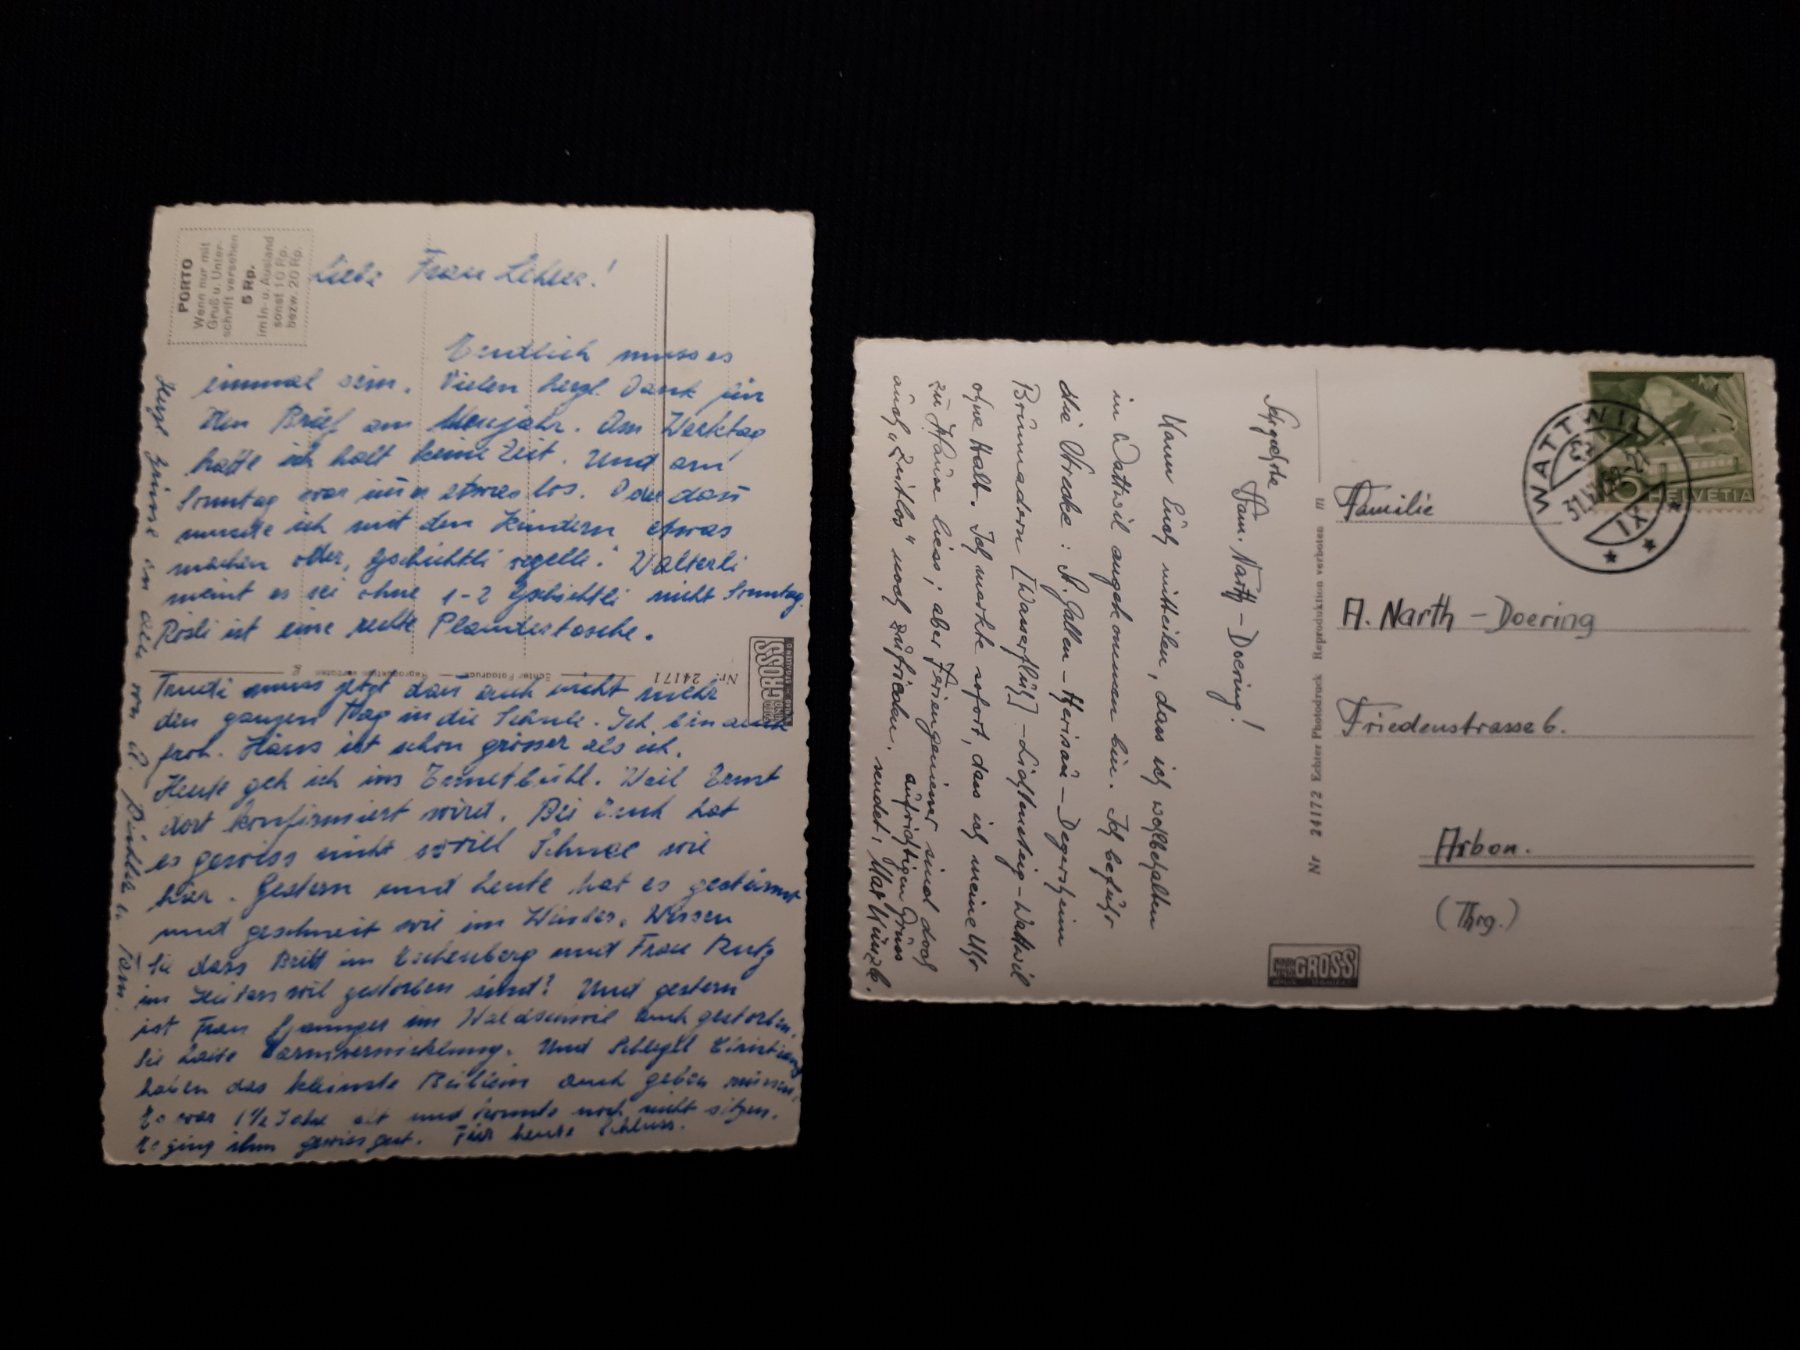 PORTO
Wenn nur mit
Gruß u. Unter-
schrift versehen
5 Rp.
im In- u. Ausland
sonst 10 Rp.
bezw. 20 Rp.
Liebe Frau Lehler!
Endlich muss es
einmal sein. Vielen herzl. Dank für
den Brief am Neujahr. Am Werktag
hatte ich halt keine Zeit. Und am
Sonntag war immer etwas los. Oder dann
musste ich mit den Kindern etwas
machen oder, gschichtli vegelle. Walterli
meint es sei ohne 1-2 gschichtli nicht Sonntag.
Rösli ist eine rechte Plaudertasche.
Nr. 24171 Echter Fotodruck — Reproduktion verboten g
GROSS
Trudi muss jetzt dann auch nicht mehr
den ganzen Tag in die Schule. Ich bin auch
froh. Hans ist schon grösser als ich.
Heute geh ich ins Ernetbühl. Weil Ernst
dort konfirmiert wird. Bei Euch hat
es gewiss nicht soviel Schnee wie
hier. Gestern und heute hat es gestürmt
und geschneit wie im Winter. Wissen
Sie dass Britt im Eschenberg und Frau Rutz
im gestorben sind? Und gestern
ist Frau im auch gestorben.
Sie hatte Darmverwicklung. Und Schlegel Christians
haben das kleinste Büblein auch geben müssen.
Es war 1½ Jahre alt und konnte noch nicht sitzen.
Es ging ihm gewiss gut. Für heute Schluss.
Herzl. Grüsse an alle von u. Fam.
Sehr geehrte
Fam. Narth-Doering!
Kann Euch mitteilen, dass ich wohlbehalten
in Wattwil angekommen bin. Ich befuhr
die Strecke: St. Gallen-Herisau-Degersheim
Brunnadern [Wasserfluh]-Lichtensteig-Wattwil
ohne Halt. Ich merkte sofort, dass ich meine Uhr
zu Hause liess; aber Feriengeniesser sind doch
auch "Zeitlos" noch zufrieden. aufrichtigen Gruss
sendet, Max Künzle.
Nr 24172 Echter Photodruck Reproduktion verboten m
GROSS
WATTWIL
31.
XI
5
HELVETIA
Familie
A. Narth-Doering
Friedenstrasse 6.
Arbon.
(Thrg.)